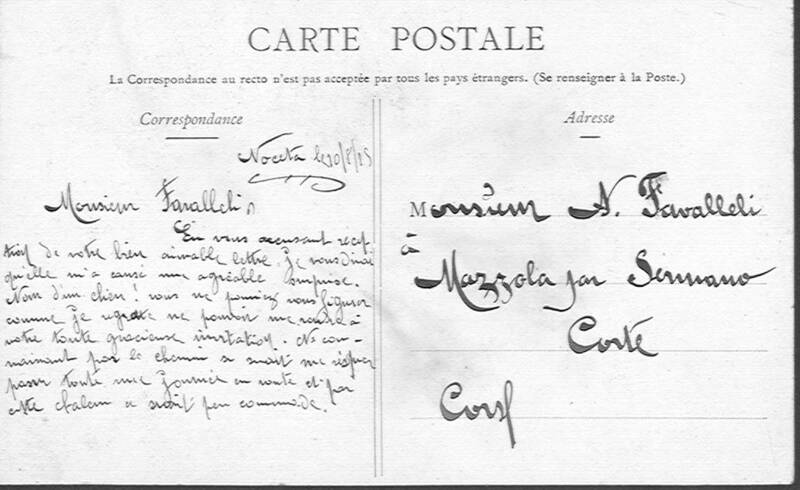 CARTE POSTALE
La Correspondance au recto n'est pas acceptée par tous les pays étrangers. (Se renseigner à la Poste.)
Correspondance
Noceta le 20/8/25
Monsieur Favalleli
En vous accusant récep
tion de votre bien aimable lettre je vous dirai
qu'elle m'a causé une agréable surprise.
Nom d'un chien! vous ne pouvez vous figurer
comme je regrette ne pouvoir me rendre à
votre toute gracieuse invitation. Ne con-
naissant pas le chemin ce serait me risquer
passer toute une journée en route et par
cette chaleur ce serait peu commode.
Adresse
Monsieur A. Favalleli
à
Mazzola par Sermano
Corte
Corse